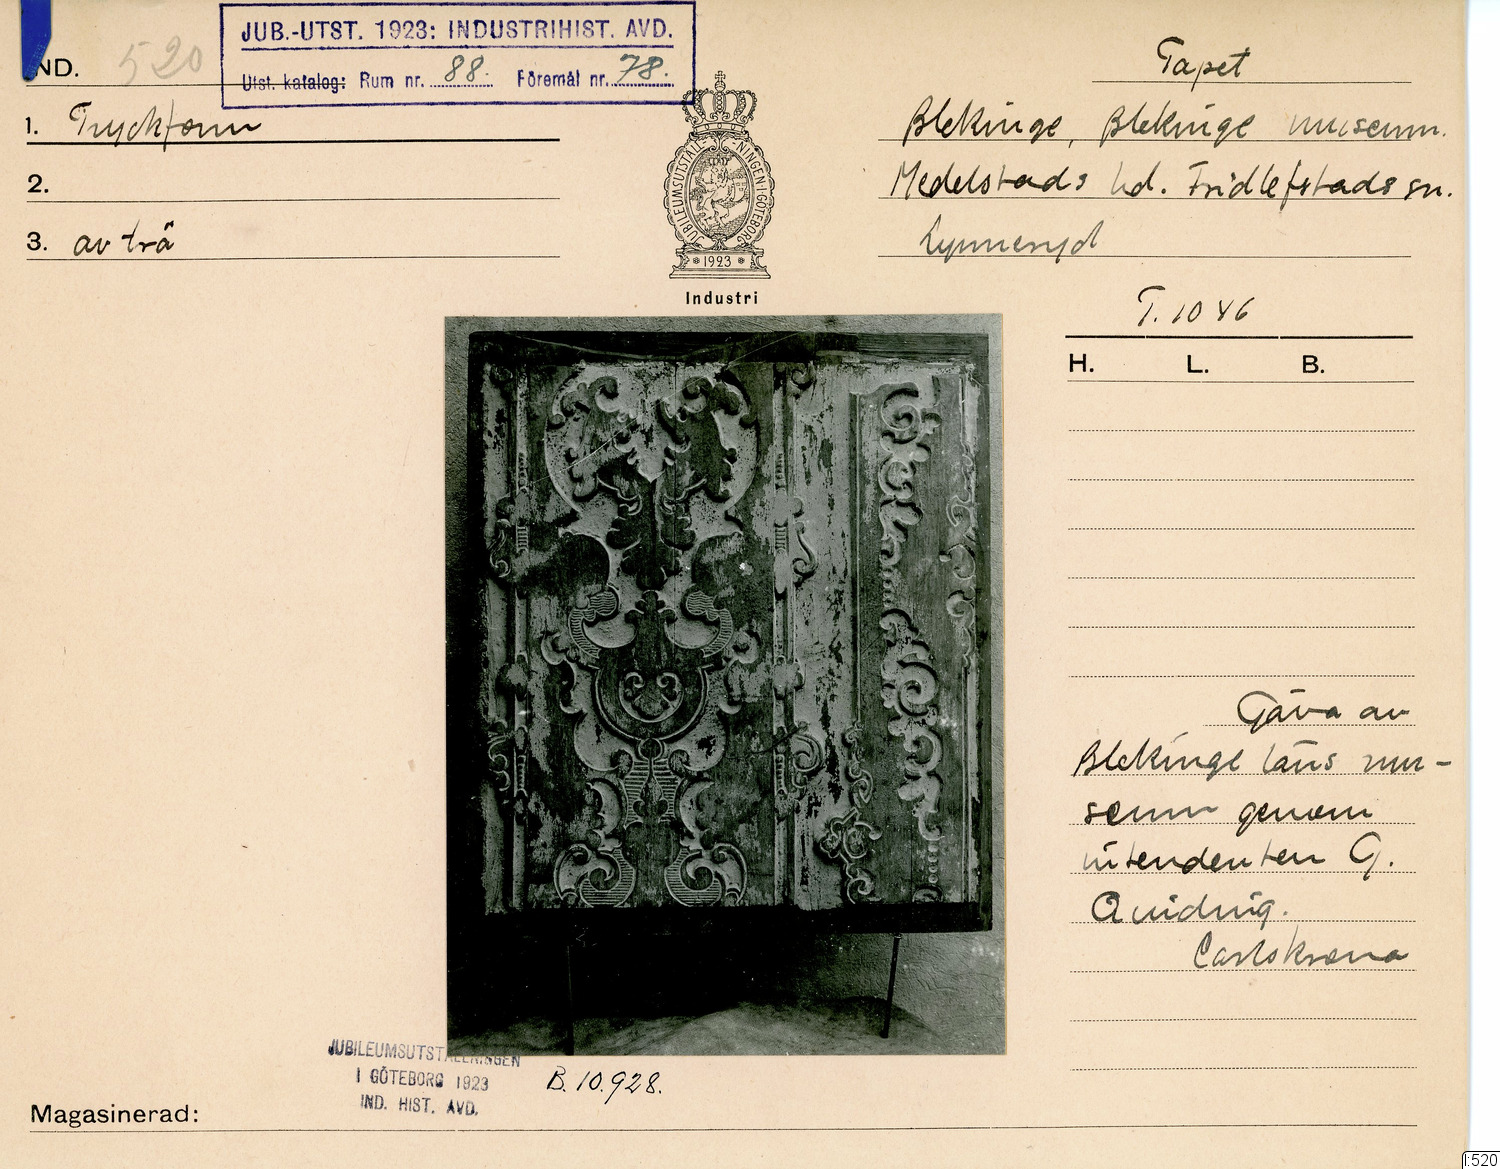 JUB.-UTST. 1923: INDUSTRIHIST. AVD.
Utst. katalog: Rum nr. 88. Föremål nr. 78.
IND. 520
1. Tryckform
2.
3. av trä
JUBILEUMSUTSTÄLLNINGEN I GÖTEBORG
* 1923 *
Industri
Tapet
Blekinge, Blekinge museum.
Medelstads hd. Fridlefstads sn.
T. 1046
H. L. B.
Gåva av
Blekinge läns mu-
seum genom
intendenten G.
Quiding.
Carlskrona
JUBILEUMSUTSTÄLLNINGEN
I GÖTEBORG 1923
IND. HIST. AVD.
B. 10.928.
Magasinerad:
I:520